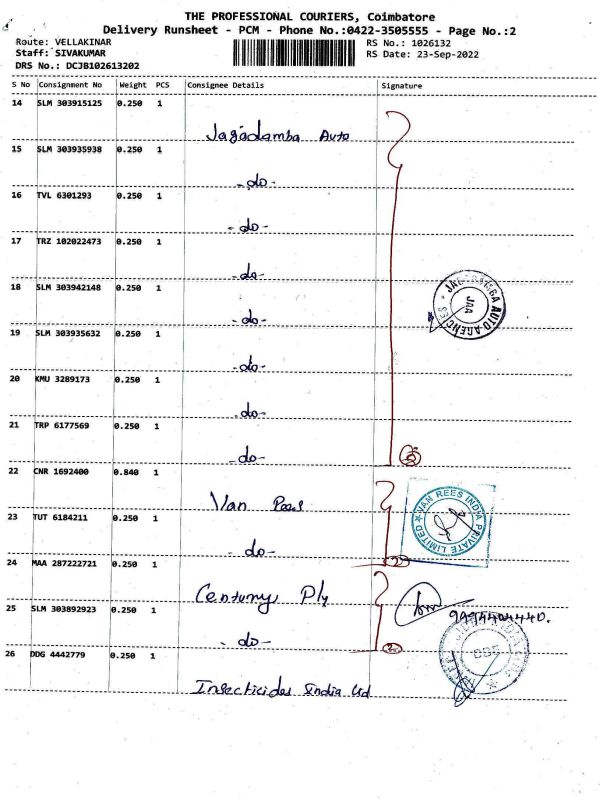 THE PROFESSIONAL COURIERS, Coimbatore
Delivery Runsheet - PCM - Phone No.:0422-3505555 - Page No.:2
Route: VELLAKINAR RS No.: 1026132
Staff: SIVAKUMAR RS Date: 23-Sep-2022
DRS No.: DCJB102613202
S No Consignment No Weight PCS Consignee Details Signature
14 SLM 303915125 0.250 1
Jagadamba Auto
15 SLM 303935938 0.250 1
-do-
16 TVL 6301293 0.250 1
-do-
17 TRZ 102022473 0.250 1
-do-
18 SLM 303942148 0.250 1
-do-
JAGADAMBA AUTO AGENCIES
JAA
19 SLM 303935632 0.250 1
-do-
20 KMU 3289173 0.250 1
-do-
21 TRP 6177569 0.250 1
-do-
22 CNR 1692400 0.840 1
Van Rees
VAN REES INDIA PRIVATE LIMITED
23 TUT 6184211 0.250 1
-do-
24 MAA 287222721 0.250 1
Century Ply
25 SLM 303892923 0.250 1
9994404440.
-do-
26 DDG 4442779 0.250 1
Insecticides India Ltd